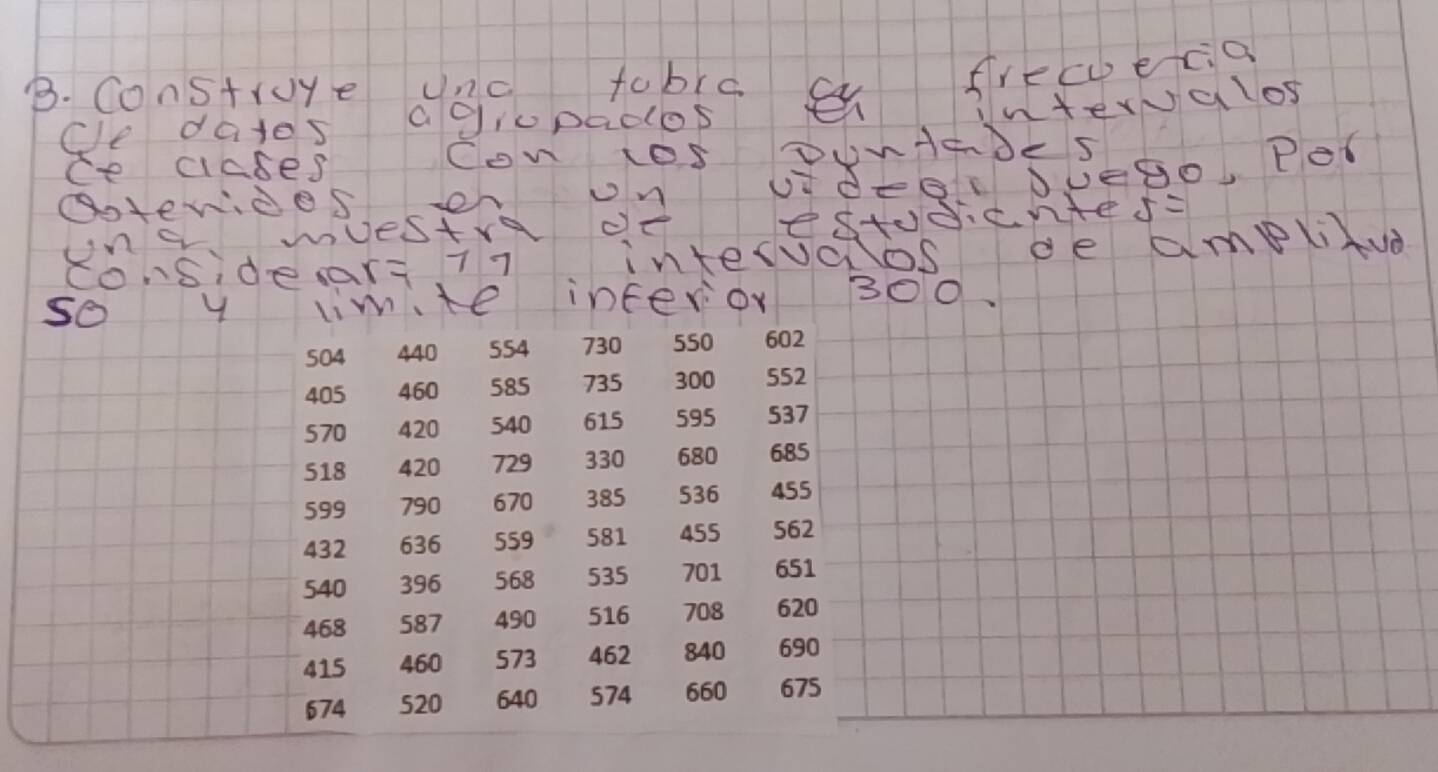 3. Construye una tabla de frecuencia
de datos agrupados en intervalos
de clases con los puntajes
obtenidos en un video juego, Por
una muestra de estudiantes=
considerar= 11 intervalos de amplitud
50 y limite inferior 300.
504 440 554 730 550 602
405 460 585 735 300 552
570 420 540 615 595 537
518 420 729 330 680 685
599 790 670 385 536 455
432 636 559 581 455 562
540 396 568 535 701 651
468 587 490 516 708 620
415 460 573 462 840 690
674 520 640 574 660 675